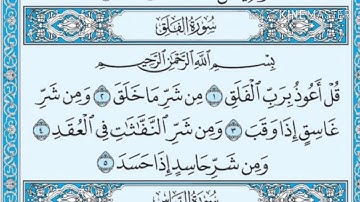 سُورَةُ الفَلَقِ
بِسْمِ اللَّهِ الرَّحْمَٰنِ الرَّحِيمِ
قُلْ أَعُوذُ بِرَبِّ ٱلْفَلَقِ ١ مِن شَرِّ مَا خَلَقَ ٢ وَمِن شَرِّ
غَاسِقٍ إِذَا وَقَبَ ٣ وَمِن شَرِّ ٱلنَّفَّٰثَٰتِ فِى ٱلْعُقَدِ ٤
وَمِن شَرِّ حَاسِدٍ إِذَا حَسَدَ ٥
سُورَةُ النَّاسِ